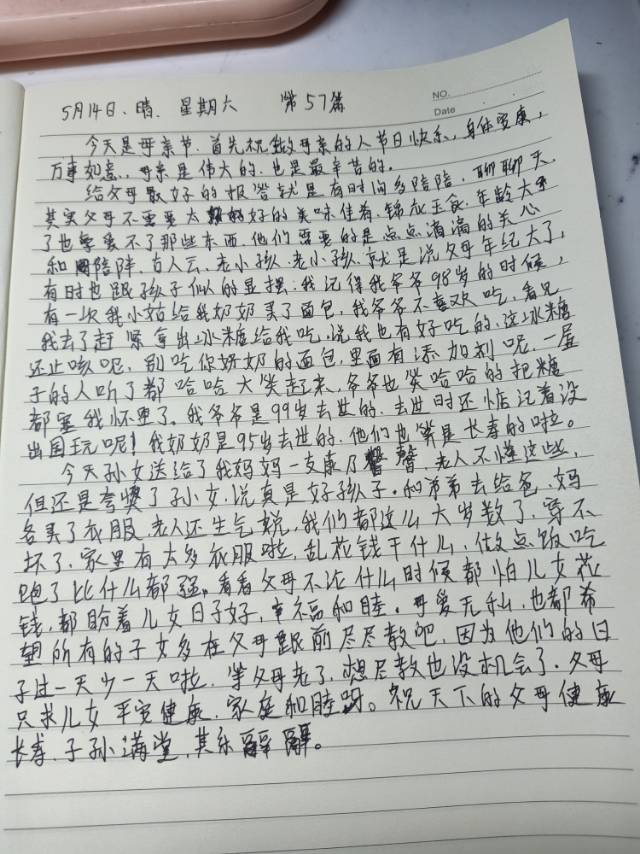 NO.
Date
5月14日、晴. 星期六 第57篇
今天是母亲节.首先祝做母亲的人节日快乐,身体安康,
万事如意,母亲是伟大的.也是最辛苦的。
给父母最好的报答就是有时间多陪陪,聊聊天.
其实父母不需要太好的美味佳肴.锦衣玉食.年龄大
了也享受不了那些东西.他们需要的是点点滴滴的关心
和陪陪伴.古人云.老小孩.老小孩.就是说父母年纪大了,
有时也跟孩子似的显摆.我记得我爷爷98岁的时候,
有一次我小姑给我奶奶买了面包,我爷爷不喜欢吃,看见
我去了赶紧拿出冰糖给我吃,说我也有好吃的.这冰糖
还止咳呢,别吃你奶奶的面包,里面有添加剂呢,一屋
子的人听了都哈哈大笑起来.爷爷也笑哈哈的把糖
都塞我怀里了。我爷爷是99岁去世的.去世时还惦记着没
出国玩呢!我奶奶是95岁去世的.他们也算是长寿的啦。
今天孙女送给了我妈妈一支康乃馨.老人不懂这些,
但还是夸赞了孙女.说真是好孩子.和弟弟去给爸.妈
各买了衣服.老人还生气说,我们都这么大岁数了,穿不
坏了.家里有太多衣服啦.乱花钱干什么,做点饭吃
饱了比什么都强。看看父母不论什么时候都怕儿女花
钱,都盼着儿女日子好,幸福和睦。母爱无私,也都希
望所有的子女多在父母跟前尽尽孝吧,因为他们的日
子过一天少一天啦.等父母老了.想尽孝也没机会了.父母
只求儿女平安健康.家庭和睦呀。祝天下的父母健康
长寿.子孙满堂,其乐